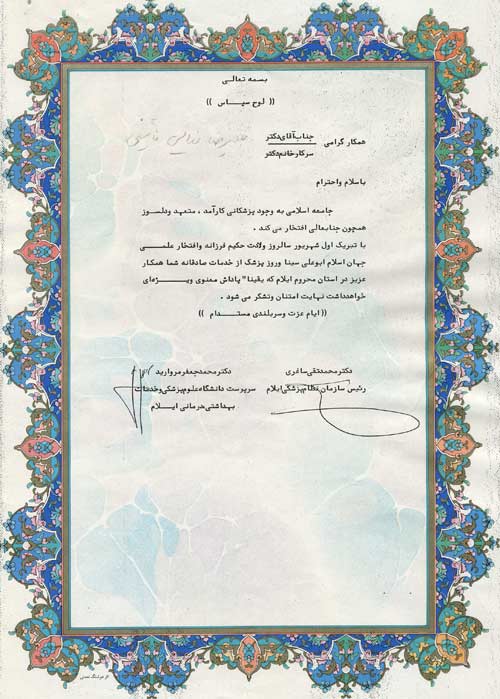 بسمه تعالی
(( لوح سپاس ))
همکار گرامی جناب آقای دکتر
سرکار خانم دکتر
با سلام و احترام
جامعه اسلامی به وجود پزشکانی کارآمد ، متعهد ودلسوز
همچون جنابعالی افتخار می کند .
با تبریک اول شهریور سالروز ولادت حکیم فرزانه وافتخار علمی
جهان اسلام ابوعلی سینا وروز پزشک از خدمات صادقانه شما همکار
عزیز در استان محروم ایلام که یقینا" پاداش معنوی ویژه‌ای
خواهدداشت نهایت امتنان وتشکر می شود .
(( ایام عزت وسربلندی مستدام ))
دکتر محمدتقی ساغری
رئیس سازمان نظام پزشکی ایلام
دکتر محمدجعفر مروارید
سرپرست دانشگاه علوم پزشکی و خدمات
بهداشتی درمانی ایلام